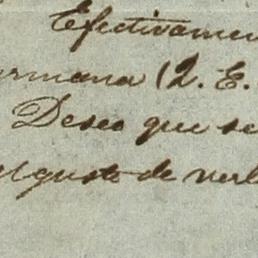 Efectivamen
ermana (2. E.
Deseo que se
el gusto de verl